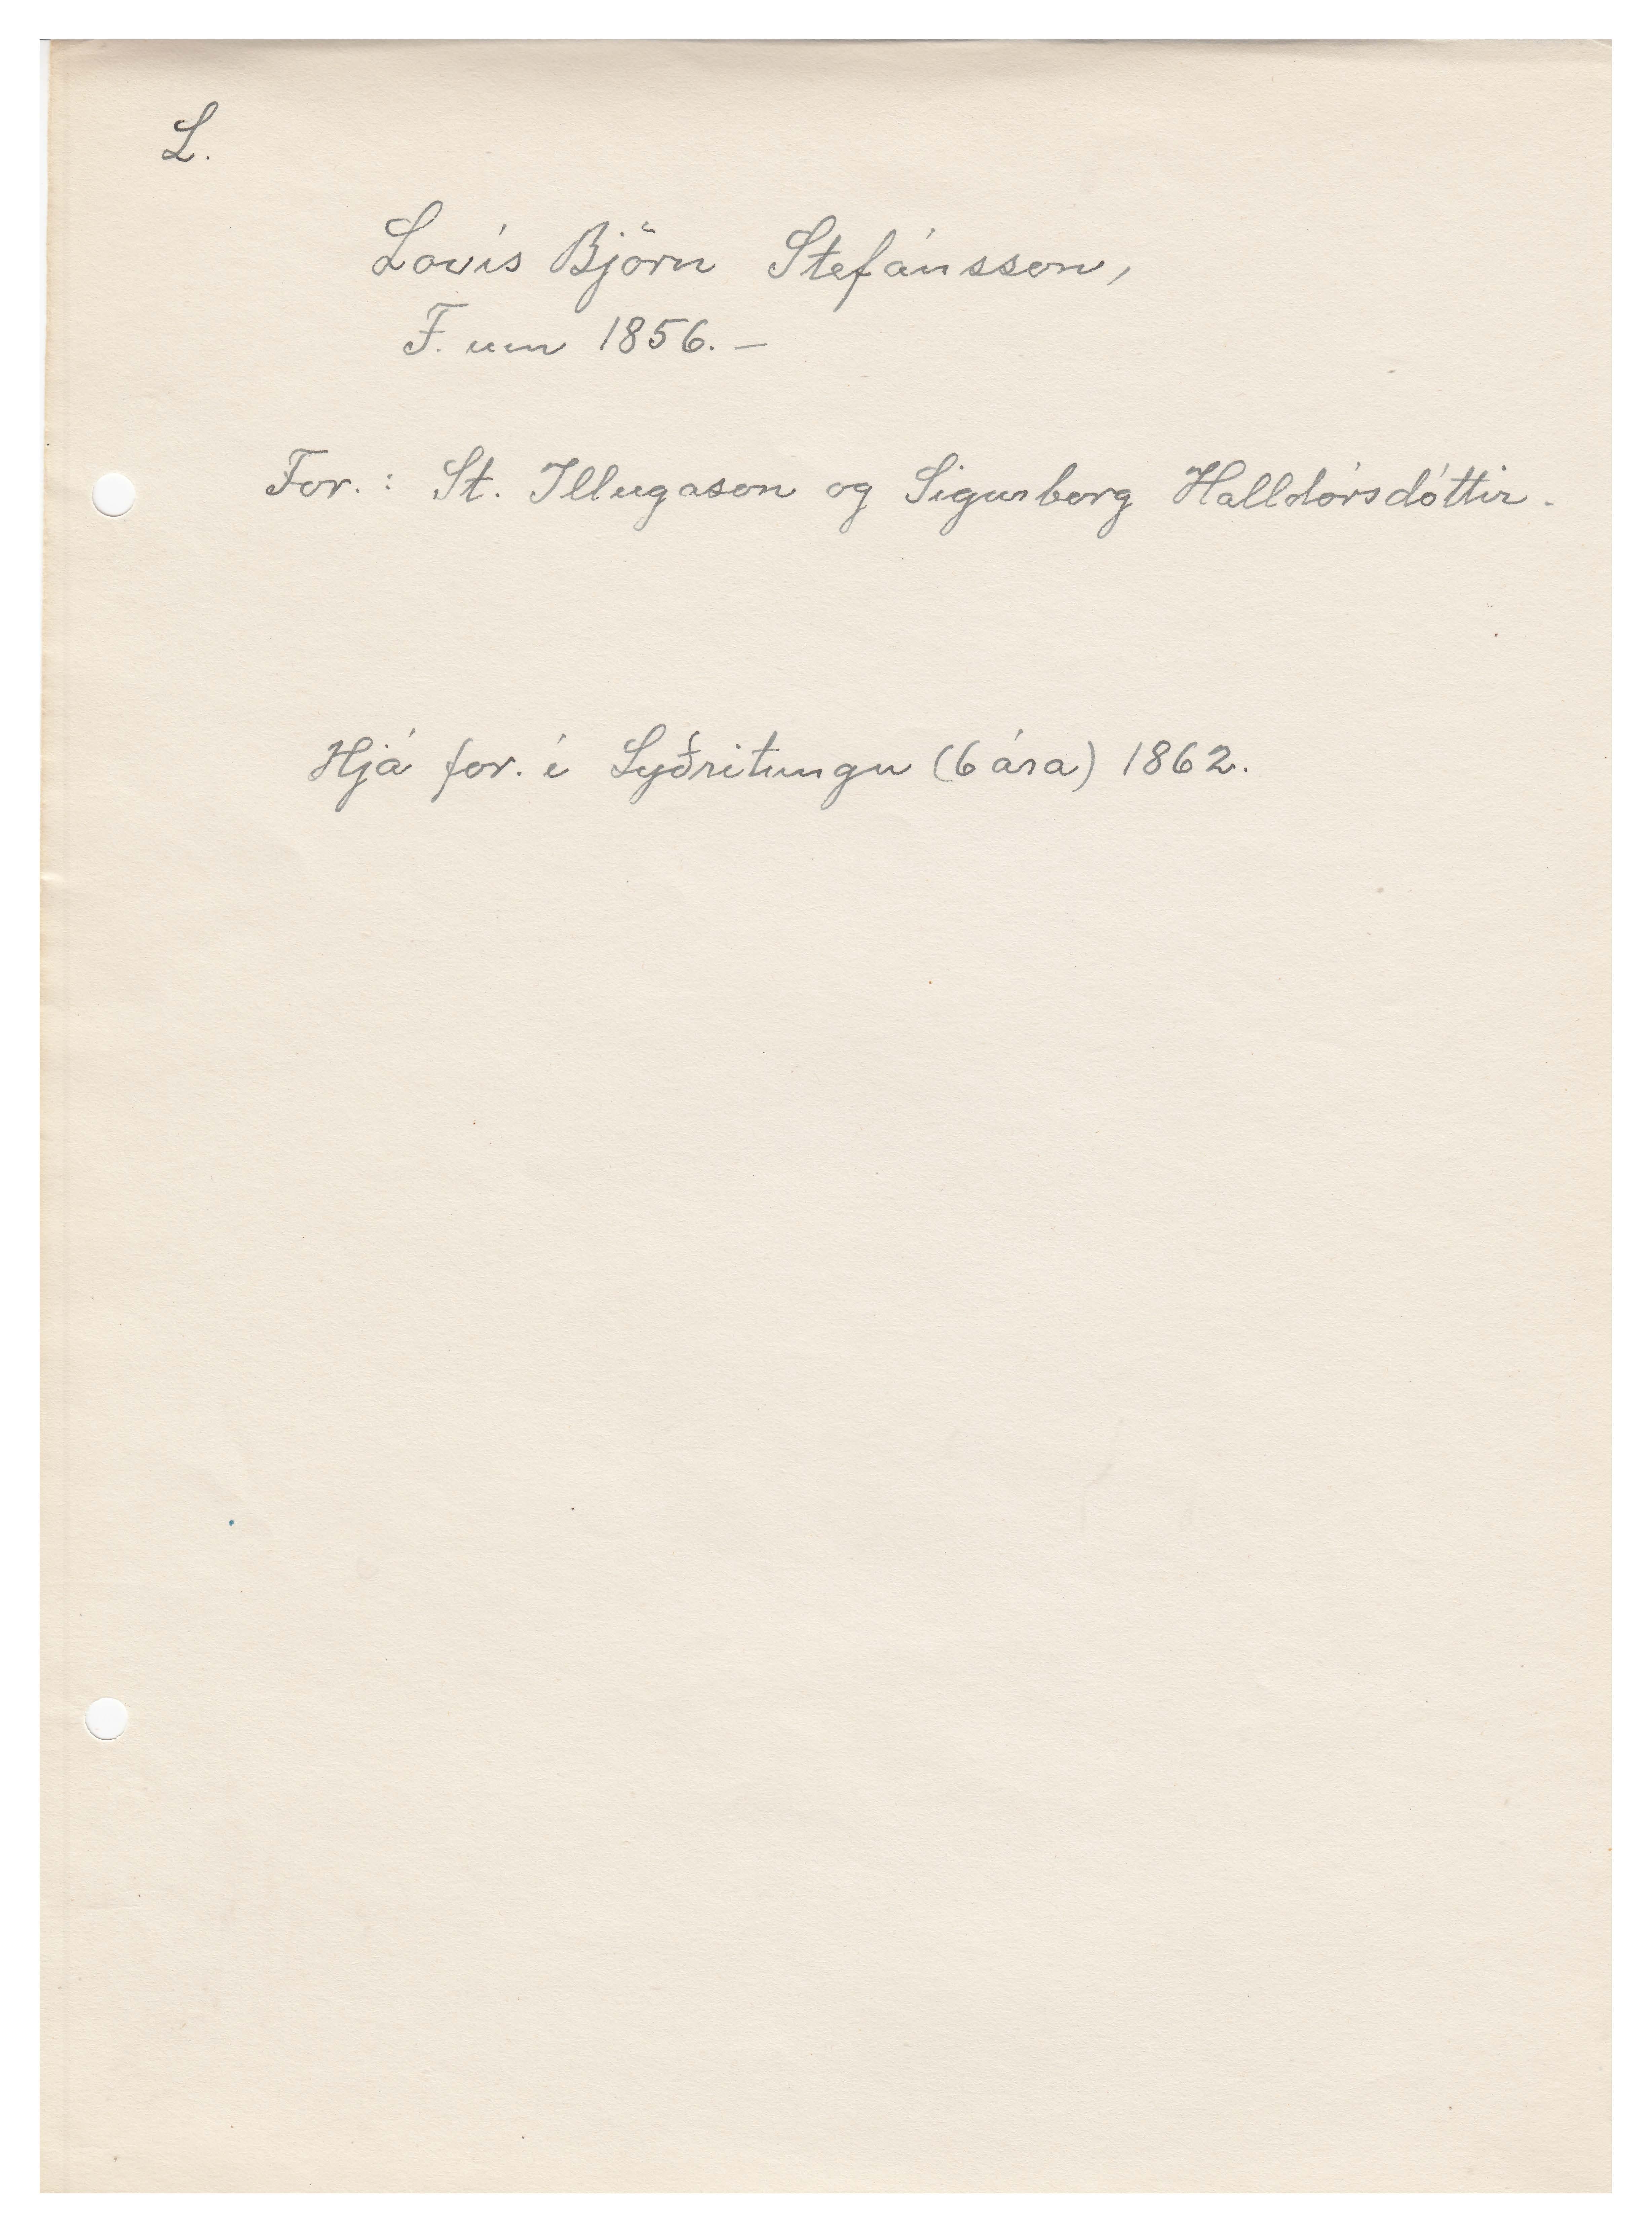 L.
Lovís Björn Stefánsson,
F. um 1856. –
For.: St. Illugason og Sigurborg Halldórsdóttir.
Hjá for. í Syðritungu (6 ára) 1862.